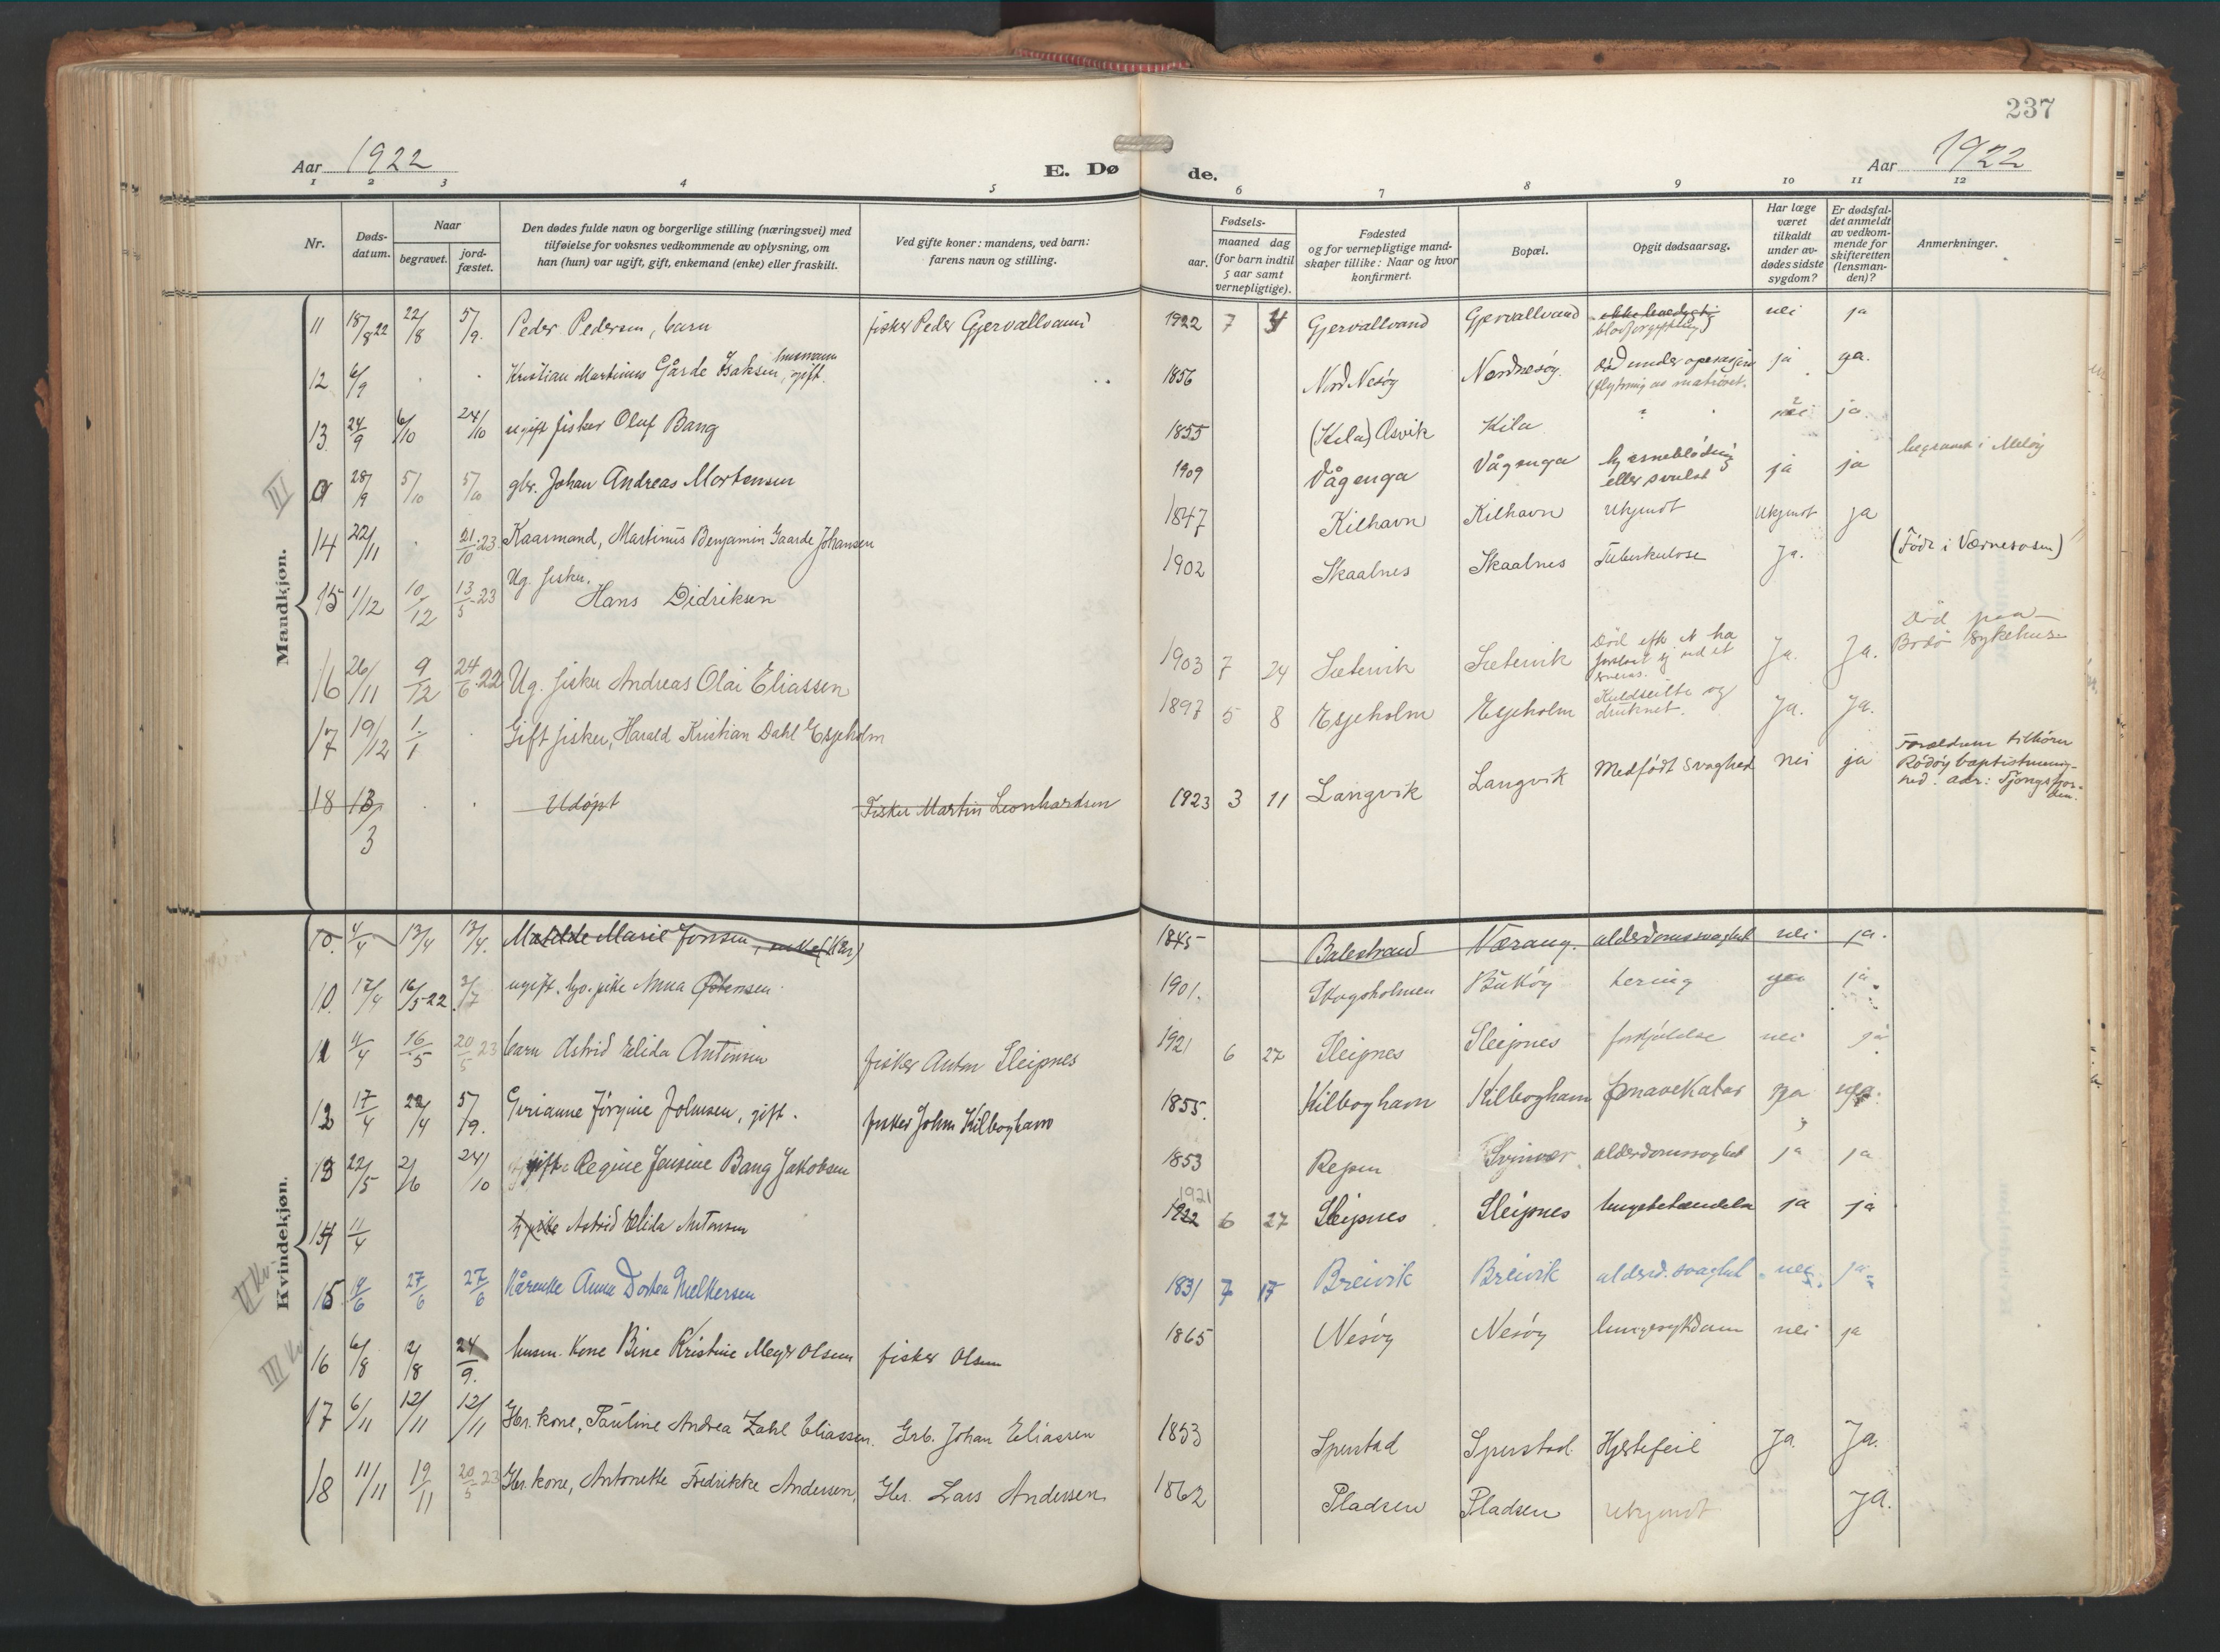 237
Aar 1922
E. Dø
de.
Aar 1922
1 2 3 4 5 6 7 8 9 10 11 12
Nr.
Døds-
datum.
Naar
begravet.
jord-
fæstet.
Den dødes fulde navn og borgerlige stilling (næringsvei) med
tilføielse for voksnes vedkommende av oplysning, om
han (hun) var ugift, gift, enkemand (enke) eller fraskilt.
Ved gifte koner: mandens, ved barn:
farens navn og stilling.
Fødsels-
aar.
maaned dag
(for barn indtil
5 aar samt
vernepligtige).
Fødested
og for vernepligtige mand-
skaper tillike: Naar og hvor
konfirmert.
Bopæl.
Opgit dødsaarsag.
Har læge
været
tilkaldt
under av-
dødes sidste
sygdom?
Er dødsfal-
det anmeldt
av vedkom-
mende for
skifteretten
(lensman-
den)?
Anmerkninger.
Mandkjøn.
11 18/8 22 22/8 5/9. Peder Pedersen, barn fisker Peder Gjervallvand 1922 7 4 Gjervallvand Gjervallvand nei ja
blodforgiftning)
husmann
12 6/9 Kristian Martinus Gårde Isaksen, gift. 1856 Nord Nesøy Nordnesøy. død under operasjon ja ja.
13 24/9 6/10 24/10 ugift fisker Oluf Bang 1855 (Kila) Åsvik Kila ? nei ja
III 28/9 5/10 5/10 gbr. Johan Andreas Mortensen 1909 Vågenga Vågenga hjerneblödning ja ja begravet i Meløy
eller svulst
14 22/11 21/10 23 Kaarmand, Martinus Benjamin Gaarde Johansen 1847 Kilhavn Kilhavn ukjendt Ukjendt ja
15 1/12 10/12 13/5 23 Ug. fisker. 1902 Skaalnes Skaalnes Tuberkulose Ja. (Födt i Værnesosen)
Hans Didriksen
16 26/11 9/12 24/6 22 Ug. fisker Andreas Olai Eliassen 1903 7 24 Sætervik Sætervik Død eft. at ha Ja. Ja. Död paa
Bodö Sykehus
17 19/12 1/1 Gift fisker, Harald Kristian Dahl Esjeholm 1897 5 8 Esjeholm Esjeholm Kuldseilte og Ja. Ja.
druknet.
18 13/3 Udøpt Fisker Martin Leonhardsen 1923 3 11 Langvik Langvik Medfödt svaghed nei ja Forældrene tilhörer
Rödöy baptistmenig-
hed. adr: Tjongsfjor-
den.
Kvindekjøn.
10. 4/4 13/4 13/4. Matilde Marie Jonsen, enke 1845 Balestrand Værang. alderdomssvaghet nei ja.
10. 17/4 16/5-22 2/7 ugift. pike Anna 1901. Skogsholmen Bukøy tering ja
11 4/4 16/5 20/5 23 barn Astrid Elida Antonsen fisker Anton Sleipnes 1921 6 27 Sleipnes Sleipnes forkjølelse nei ja
12 17/4 22/4 5/9. Jørgine Johnsen, gift. fisker Johan Kilboghavn 1855. Kilboghavn Kilboghavn mavekatar ja
13 22/5 2/6 24/10 gift Regine Jensine Bang Jakobsen 1853 Repen Svinvær alderdomssvaghet ja ja
14 11/4 pike Astrid Elida Antonsen 1921 1922 6 27 Sleipnes Sleipnes lungebetændelse ja ja
II Kv. 15 27/6 27/6 Kårenke Anna Dortea Melkersen 1831 7 Breivik Breivik alderd. svaghet nei ja
III Kv. 16 6/8 24/9. husm. kone Bine Kristine Meyer Olsen fisker Olsen 1865 Nesöy Nesöy lungesykdom nei ja
17 6/11 12/11 12/11 Gbr. kone, Pauline Andrea Zahl Eliassen. Grb. Johan Eliassen 1853 Spenstad Spenstad Hjertefeil Ja. Ja.
18 11/11 19/11 20/5 23 Gbr. kone, Antonette Fredrikke Andersen, Gbr. Lars Andersen. 1862 Pladsen Pladsen ukjendt Ja.